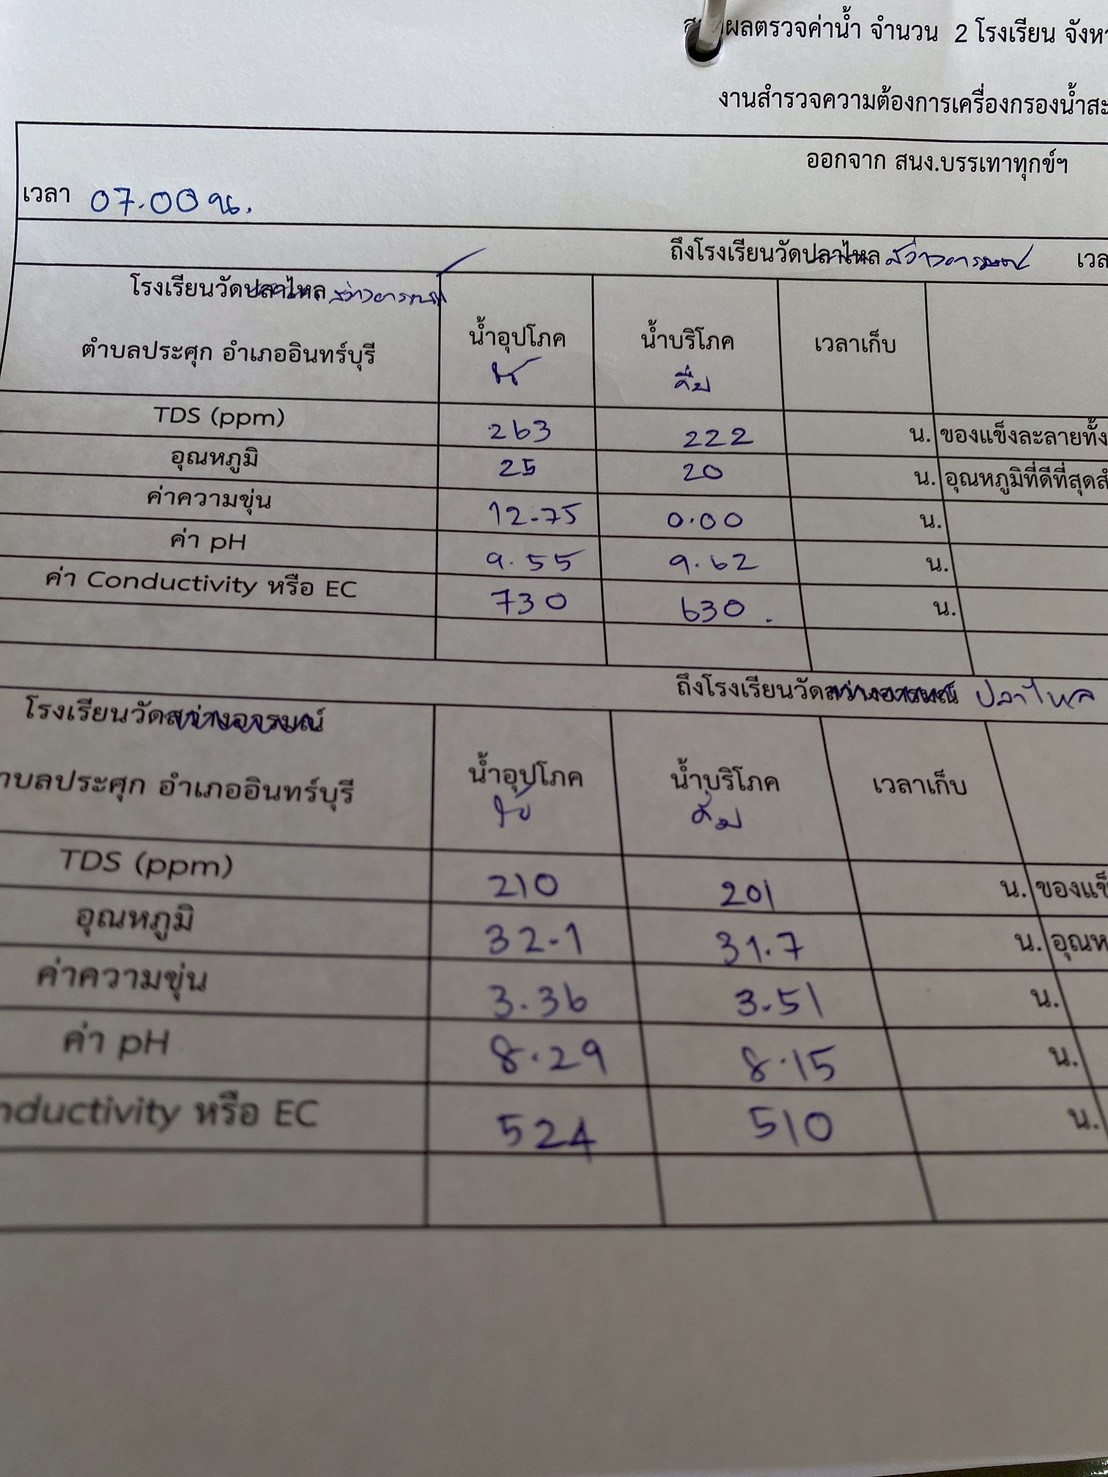 ผลตรวจค่าน้ำ จำนวน 2 โรงเรียน จังห
งานสำรวจความต้องการเครื่องกรองน้ำสะ
ออกจาก สนง.บรรเทาทุกข์ฯ
เวลา 07.00 น.
ถึงโรงเรียนวัดปลาไหล สว่างอารมณ์ เวล
โรงเรียนวัดปลาไหล สว่างอารมณ์
ตำบลประศุก อำเภออินทร์บุรี น้ำอุปโภค น้ำบริโภค เวลาเก็บ
ใช้ ดื่ม
TDS (ppm) 263 222 น. ของแข็งละลายทั้ง
อุณหภูมิ 25 20 น. อุณหภูมิที่ดีที่สุดสำ
ค่าความขุ่น 12.75 0.00 น.
ค่า pH 9.55 9.62 น.
ค่า Conductivity หรือ EC 730 630 น.
ถึงโรงเรียนวัดสว่างอารมณ์ ปลาไหล
โรงเรียนวัดสว่างอารมณ์
าบลประศุก อำเภออินทร์บุรี น้ำอุปโภค น้ำบริโภค เวลาเก็บ
ใช้ ดื่ม
TDS (ppm) 210 201 น. ของแข็
อุณหภูมิ 32.1 31.7 น. อุณห
ค่าความขุ่น 3.36 3.51 น.
ค่า pH 8.29 8.15 น.
nductivity หรือ EC 524 510 น.